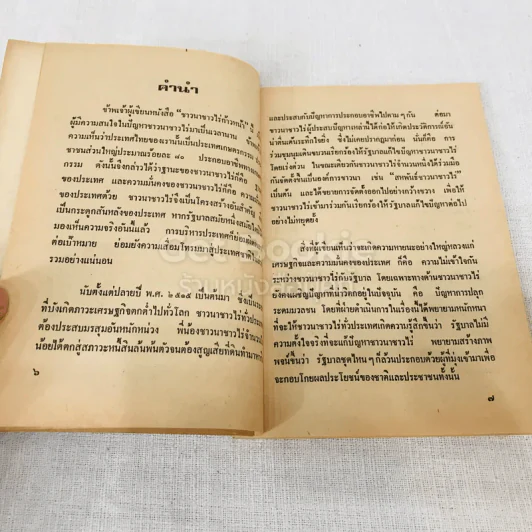 คำนำ
ข้าพเจ้าผู้เขียนหนังสือ "ชาวนาชาวไร่ก้าวหน้า"
ผู้มีความสนใจในปัญหาชาวนาชาวไร่มาเป็นเวลานาน
ความเห็นว่าประเทศไทยของเรานั้นเป็นประเทศเกษตรกรรม
ชาวชนส่วนใหญ่ประมาณร้อยละ ๘๐ ประกอบอาชีพ
กรรม ดังนั้นจึงกล่าวได้ว่าฐานะของชาวนาชาวไร่ก็คือ
ของประเทศ และความมั่นคงของชาวนาชาวไร่ก็คือ
ของประเทศด้วย ชาวนาชาวไร่จึงเป็นโครงสร้างอัน
เป็นกระดูกสันหลังของประเทศ หากรัฐบาลสมัยหนึ่งสมัยใด
มองเห็นความจริงอันนี้แล้ว การบริหารประเทศก็ย่อม
ต่อเป้าหมาย ย่อมยังความเสื่อมโทรมมาสู่ประเทศชาติ
รวมอย่างแน่นอน
นับตั้งแต่ปลายปี พ.ศ. ๒๕๑๕ เป็นต้นมา
ที่บังเกิดภาวะเศรษฐกิจตกต่ำไปทั่วโลก ชาวนาชาวไร่
ต้องประสบมรสุมอันหนักหน่วง พี่น้องชาวนาชาวไร่จำนวน
น้อยได้ตกสู่สภาวะหนี้สินล้นพ้นตัวจนต้องสูญเสียที่ดินทำมาหา
๖
และประสบกับปัญหาการประกอบอาชีพไปตามๆกัน ต่อมา
ชาวนาชาวไร่ผู้ประสบปัญหาเหล่านี้ได้ก่อให้เกิดประวัติการณ์อัน
น่าตื่นเต้นระทึกใจยิ่ง ซึ่งไม่เคยปรากฏมาก่อน นั่นก็คือ การ
ร่วมชุมนุมเดินขบวนเรียกร้องให้รัฐบาลแก้ไขปัญหาชาวนาชาวไร่
โดยเร่งด่วน ในขณะเดียวกันชาวนาชาวไร่จำนวนหนึ่งได้ร่วมมือ
กันจัดตั้งขึ้นเป็นองค์การชาวนา เช่น "สหพันธ์ชาวนาชาวไร่"
เป็นต้น และได้ขยายการจัดตั้งออกไปอย่างกว้างขวาง เพื่อให้
ชาวนาชาวไร่เข้ามาร่วมกันเรียกร้องให้รัฐบาลแก้ไขปัญหาต่อไป
อย่างไม่หยุดยั้ง
สิ่งที่ผู้เขียนเห็นว่าจะเกิดความหายนะอย่างใหญ่หลวงแก่
เศรษฐกิจและความมั่นคงของประเทศ ก็คือ ความไม่เข้าใจกัน
ระหว่างชาวนาชาวไร่กับรัฐบาล โดยเฉพาะทางด้านชาวนาชาวไร่
ยังคงเผชิญปัญหาที่น่าวิตกอยู่ในปัจจุบัน คือ ปัญหาการปลุก
ระดมมวลชน โดยที่ฝ่ายดำเนินการในเรื่องนี้ได้พยายามหนักหนา
ที่จะให้ชาวนาชาวไร่ทั่วประเทศเกิดความรู้สึกขึ้นว่า รัฐบาลไม่มี
ความตั้งใจจริงที่จะแก้ปัญหาชาวนาชาวไร่ พยายามสร้างภาพ
พจน์ขึ้นว่า รัฐบาลชุดไหนๆก็ล้วนประกอบด้วยผู้ที่มุ่งเข้ามาเพื่อ
จะกอบโกยผลประโยชน์ของชาติและประชาชนทั้งนั้น
๗